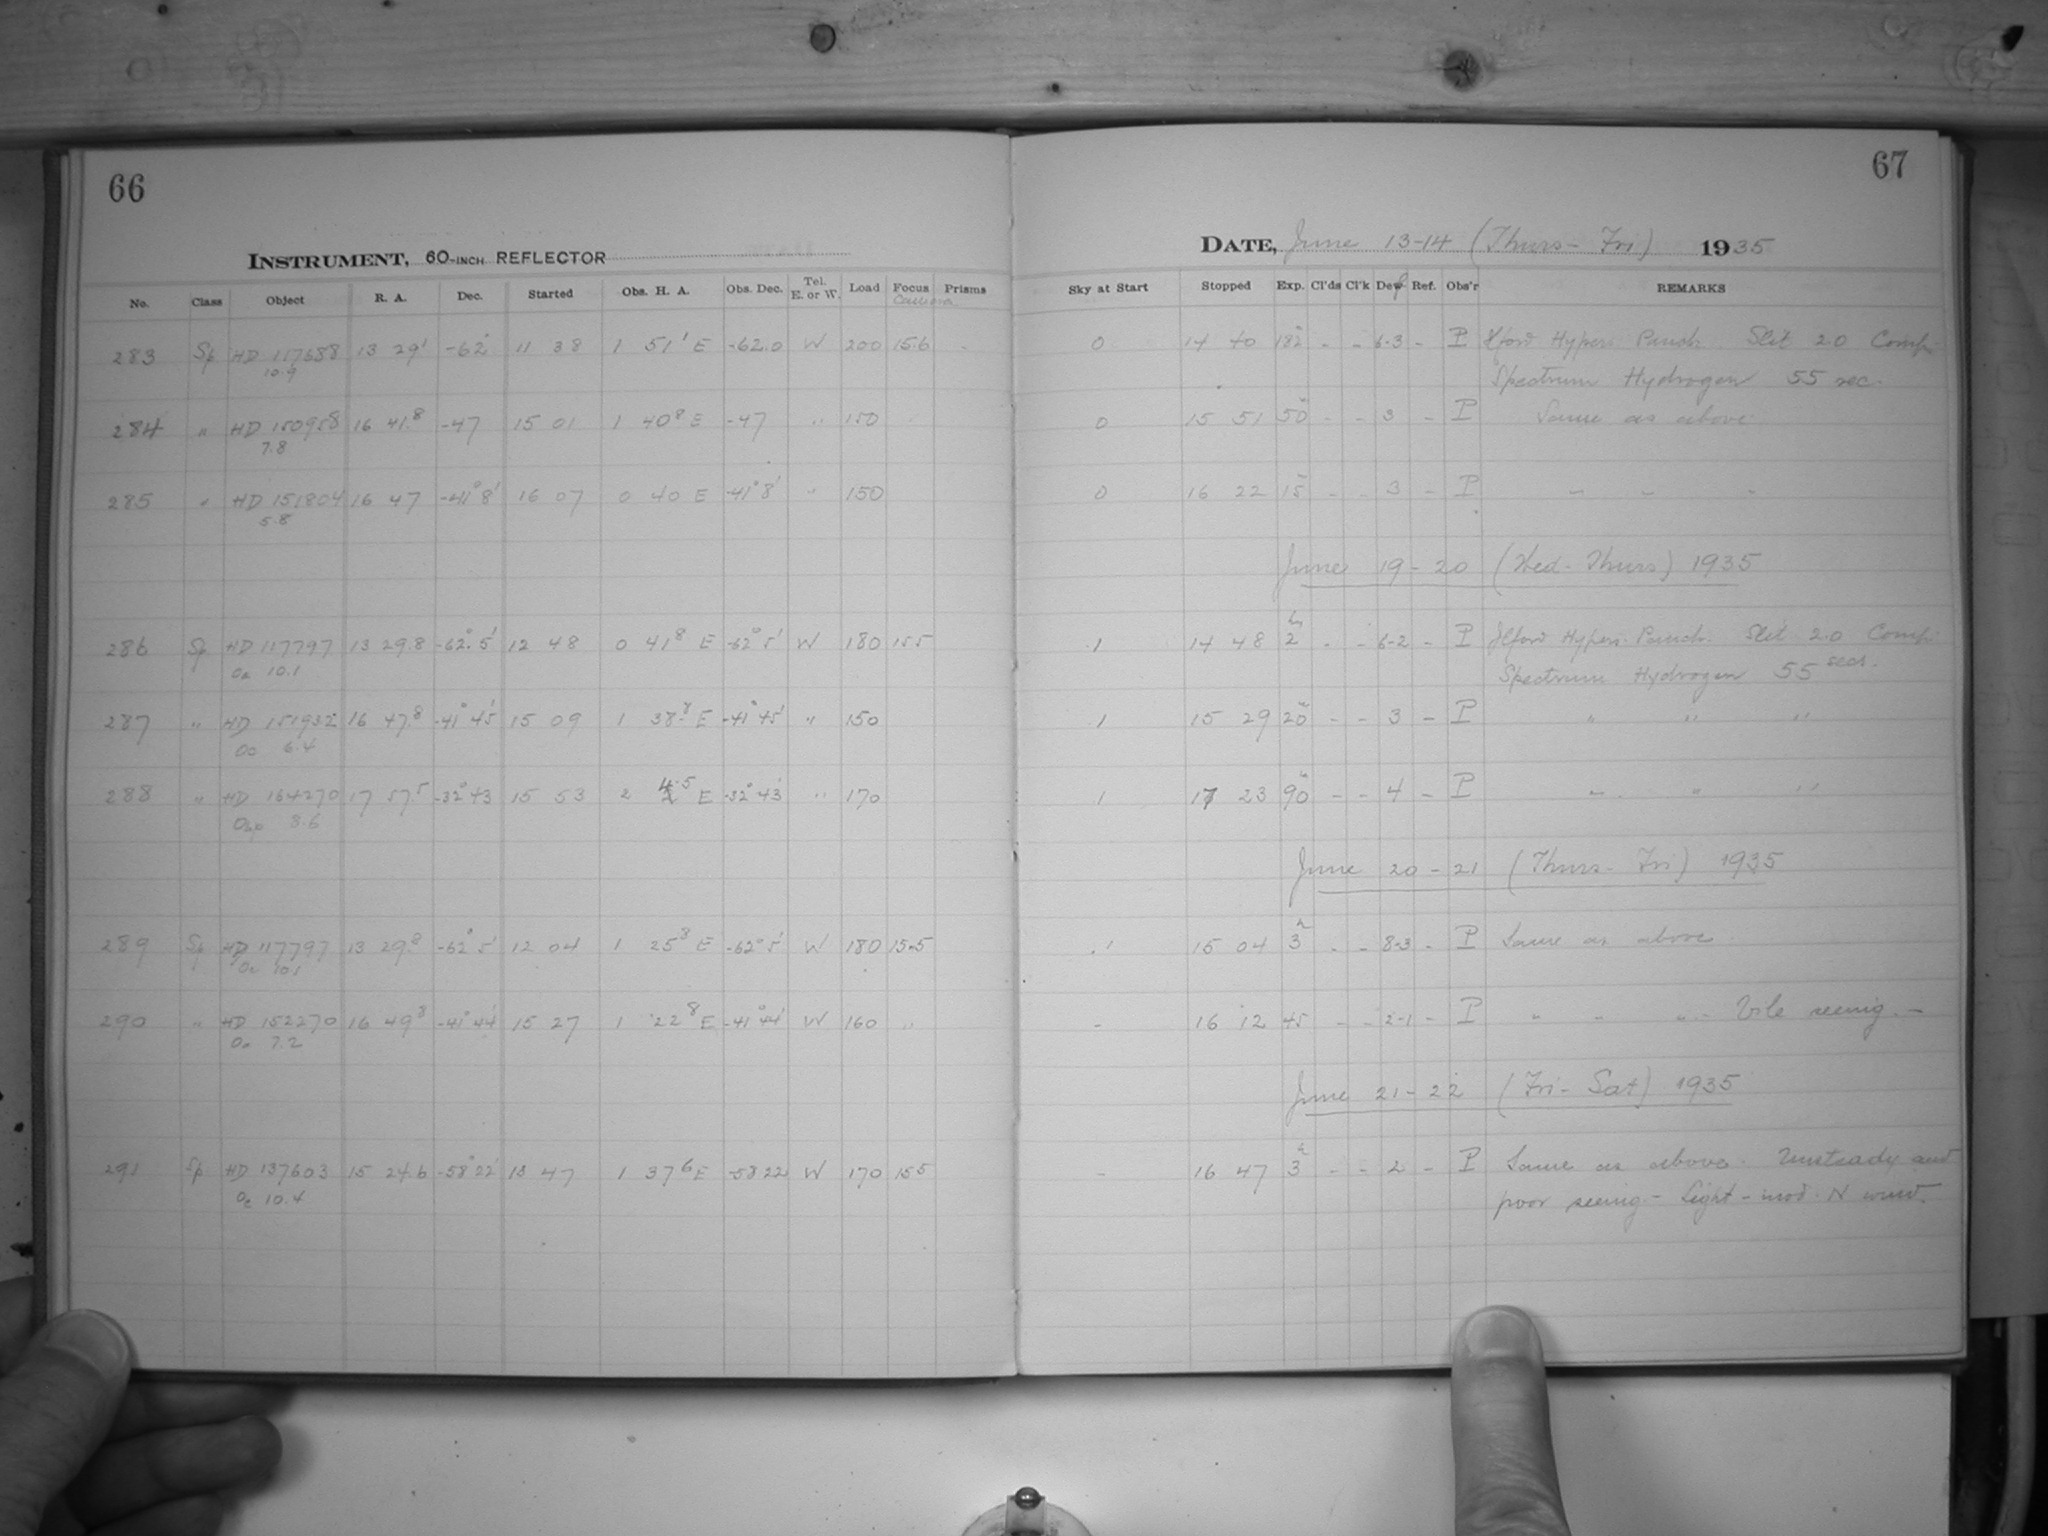 66
INSTRUMENT, 60-INCH REFLECTOR
No. Class Object R. A. Dec. Started Obs. H. A. Obs. Dec. Tel. E. or W. Load Focus Camera Prisms
283 Sp HD 117688 13 29' -62° 11 38 1 51' E -62.0 W 200 15.6 -
10.9
284 " HD 150958 16 41.8 -47 15 01 1 40.8 E -47 " 150
7.8
285 " HD 151804 16 47 -41° 8' 16 07 0 40 E -41° 8' " 150
5.8
286 Sp HD 117797 13 29.8 -62° 5' 12 48 0 41.8 E -62° 5' W 180 15.5
Oa 10.1
287 " HD 151932 16 47.8 -41° 45' 15 09 1 38.8 E -41° 45' " 150
6.4
288 " HD 164270 17 57.5 -32° 43 15 53 2 4.5 E -32° 43' " 170
289 Sp HD 117797 13 29.8 -62° 5' 12 04 1 25.8 E -62° 5' W 180 15.5
Oa 10.1
290 " HD 152270 16 49.8 -41° 44' 15 27 1 22.8 E -41° 44' W 160 "
Oa 7.2
291 Sp HD 137603 15 24.6 -58° 22' 13 47 1 37.6 E -58 22 W 170 15.5
10.4
67
DATE, June 13-14 (Thurs-Fri) 1935
Sky at Start Stopped Exp. Cl'ds Cl'k Dew Ref. Obs'r REMARKS
0 14 40 182 - - 6-3 - P Ilford Hypers. Panch. Slit 2.0 Comp.
Spectrum Hydrogen 55 sec.
0 15 51 50 - - 3 - P Same as above
0 16 22 15 - - 3 - P " " "
June 19-20 (Wed-Thurs) 1935
1 14 48 2h - - 6-2 - P Ilford Hypers. Panch. Slit 2.0 Comp.
Spectrum Hydrogen 55 secs.
1 15 29 20 - - 3 - P " " "
1 17 23 90 - - 4 - P " " "
June 20-21 (Thurs-Fri) 1935
1 15 04 3h - - 8-3 - P Same as above
- 16 12 45 - - 2-1 - P " " " - Vile seeing. -
June 21-22 (Fri-Sat) 1935
- 16 47 3h - - 2 - P Same as above. Unsteady and
poor seeing - Light-mod. N wind.